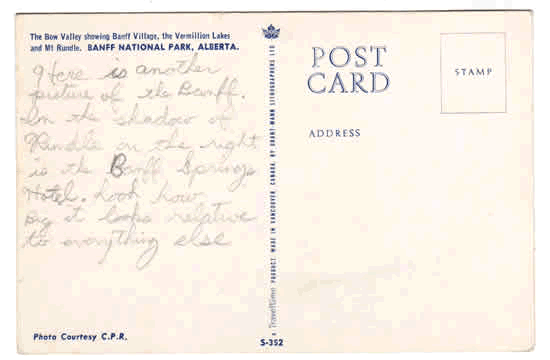 The Bow Valley showing Banff Village, the Vermillion Lakes
and Mt Rundle. BANFF NATIONAL PARK, ALBERTA.
Here is another
picture of the Banff.
In the shadow of
Rundle on the right
is the Banff Springs
Hotel. Look how
big it looks relative
to everything else
Photo Courtesy C.P.R.
Traveltime PRODUCT MADE IN VANCOUVER CANADA, BY GRANT-MANN LITHOGRAPHERS LTD
S-352
POST
CARD
ADDRESS
STAMP